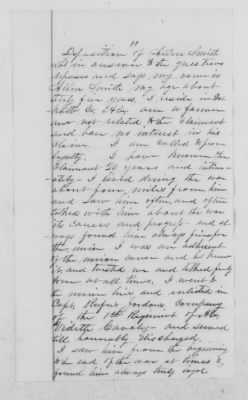 10
Deposition of Allen Smith
who in answer to the questions
deposes and says my name is
Allen Smith, my age about
five years, I reside in De
Kalb Co. Ala, am a farmer
am not related to the claimant
and have no interest in his
claim. I am called to prove
loyalty. I have known the
claimant 20 years and inti
mately. I lived during the war
about four miles from him
and saw him often, and often
talked with him about the war
its causes and progress and al
ways found him always firm for
the union I was an adherent
of the union cause and he knew
it, and trusted me and talked freely
to me at all times. I went to
the union lines and enlisted in
Capt. Company
of the 1st Regiment of Ala
Vidette Cavalry and served
till honorably discharged.
I saw him from the beginning
to the end of the war at times &
found him always truly loyal